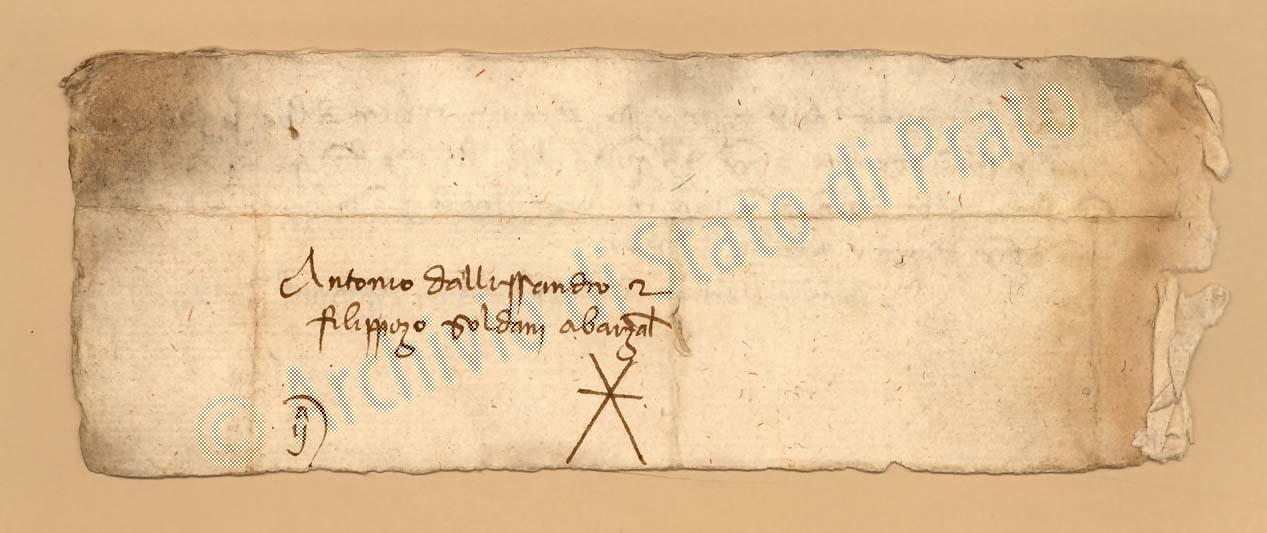 © Archivio di Stato di Prato
Antonio dallessandro e
filippozo Soldani a barzal